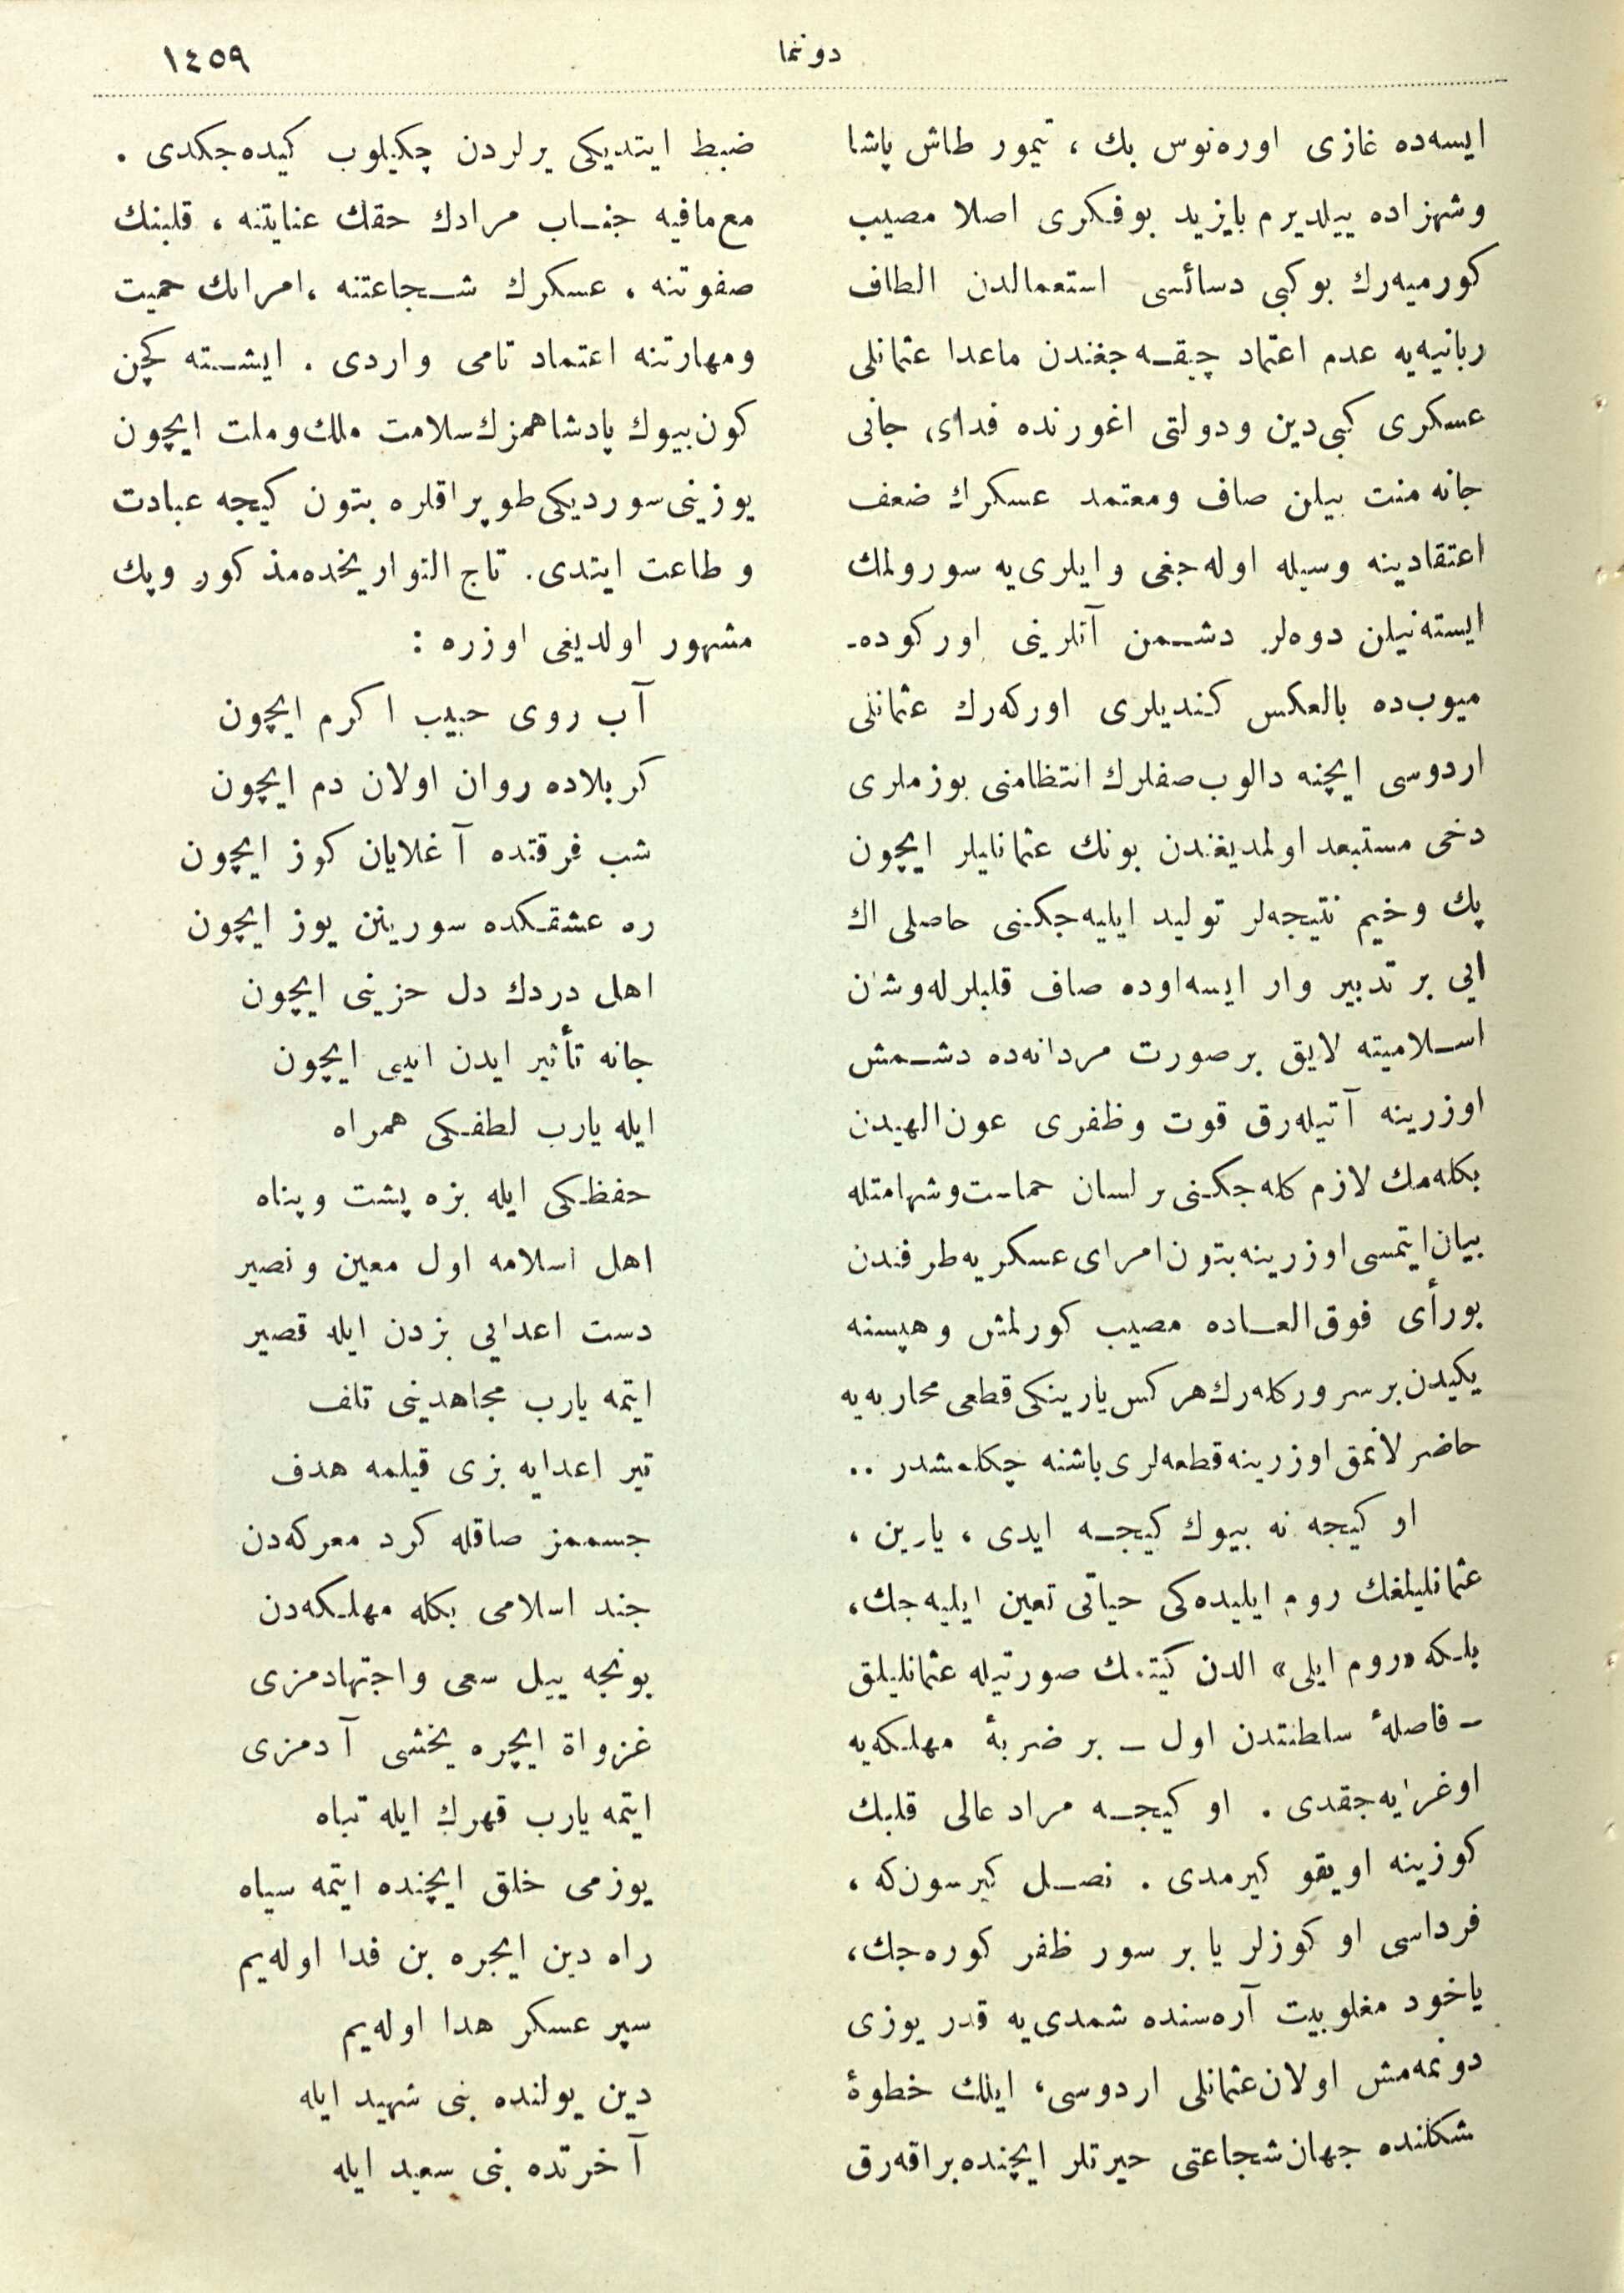 دوننما
١٤٥٩
ايسه‌ده غازى اوره‌نوس بك ، تيمور طاش پاشا
وشهزاده ييلديرم بايزيد بوفكرى اصلا مصيب
كورميه‌رك بوكبى دسائسى استعمالدن الطاف
ربانيه‌يه عدم اعتماد چيقه‌جغندن ماعدا عثمانلى
عسكرى كبى‌دين ودولتى اغورنده فداى جانى
جانه منت بيلن صاف ومعتمد عسكرك ضعف
اعتقادينه وسيله اوله‌جغى وايلرى‌يه سورولمك
ايسته‌نيلن دوه‌لر دشمن آتلرينى اوركوده‌-
ميوب‌ده بالعكس كنديلرى اوركه‌رك عثمانلى
اردوسى ايچنه دالوب‌صفلرك انتظامنى بوزملرى
دخى مستبعد اولمديغندن بونك عثمانليلر ايچون
پك وخيم نتيجه‌لر توليد ايليه‌جكنى حاصلى اك
ايى بر تدبير وار ايسه‌اوده صاف قلبلرله‌وشان
اسلاميته لايق برصورت مردانه‌ده دشمش
اوزرينه آتيله‌رق قوت وظفرى عون‌الهيدن
بكله‌مك لازم كله‌جكنى بر لسان حماست‌وشهامتله
بيان‌ايتمسى‌اوزرينه‌بتون‌امراى‌عسكريه‌طرفندن
بورأى فوق‌العاده مصيب كورلمش وهپسنه
يكيدن‌برسروركله‌رك‌هركس‌يارينكى‌قطعى‌محاربه‌يه
حاضرلانمق‌اوزرينه‌قطعه‌لرى‌باشنه چكلمشدر ..
او كيجه نه بيوك كيجه ايدى ، يارين ،
عثمانليلغك روم ايليده‌كى حياتى تعين ايليه‌جك،
بلكه «روم ايلى» الدن كيتمك صورتيله عثمانليلق
– فاصلهٔ سلطنتدن اول – بر ضربهٔ مهلكه‌يه
اوغرايه‌جقدى . او كيجه مراد عالى قلبك
كوزينه اويقو كيرمدى . نصل كيرسون‌كه ،
فرداسى او كوزلر يا بر سور ظفر كوره‌جك،
ياخود مغلوبيت آره‌سنده شمدى‌يه قدر يوزى
دونمه‌مش اولان‌عثمانلى اردوسى، ايلك خطوهٔ
شكلنده جهان‌شجاعتى حيرتلر ايچنده‌براقه‌رق
ضبط ايتديكى يرلردن چكيلوب كيده‌جكدى .
مع‌مافيه جناب مرادك حقك عنايتنه ، قلبنك
صفوتنه ، عسكرك شجاعتنه ،امرانك حميت
ومهارتنه اعتماد تامى واردى . ايشته كچن
كون‌بيوك پادشاهمزك‌سلامت ملك‌وملت ايچون
يوزينى‌سورديكى‌طوپراقلره بتون كيجه عبادت
وطاعت ايتدى. تاج التواريخده‌مذكور وپك
مشهور اولديغى اوزره :
آب روى حبيب اكرم ايچون
كربلاده روان اولان دم ايچون
شب فرقتده آغلايان كوز ايچون
ره عشقكده سورينن يوز ايچون
اهل دردك دل حزينى ايچون
جانه تأثير ايدن انينى ايچون
ايله يارب لطفكى همراه
حفظكى ايله بزه پشت وپناه
اهل اسلامه اول معين ونصير
دست اعدايى بزدن ايله قصير
ايتمه يارب مجاهدينى تلف
تير اعدايه بزى قيلمه هدف
جسممز صاقله كرد معركه‌دن
جند اسلامى بكله مهلكه‌دن
بونجه ييل سعى واجتهادمزى
غزواة ايچره يخشى آدمزى
ايتمه يارب قهرك ايله تباه
يوزمى خلق ايچنده ايتمه سياه
راه دين ايچره بن فدا اوله‌يم
سپر عسكر هدا اوله‌يم
دين يولنده بنى شهيد ايله
آخرتده بنى سعيد ايله